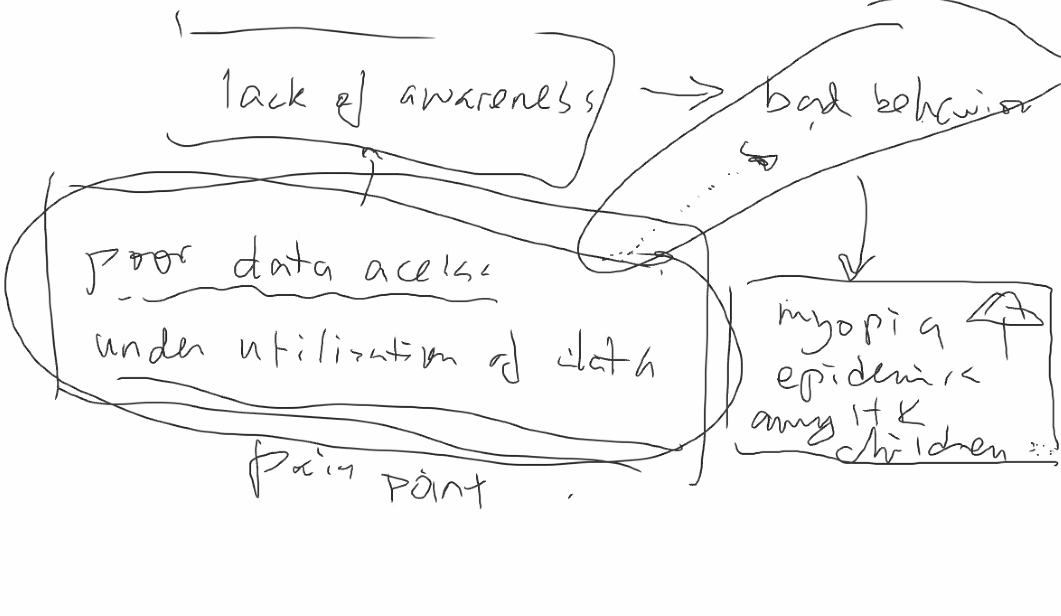 lack of awareness
bad behavior
poor data acess
under utilization of data
myopia
epidemic
among HK
children
pain point